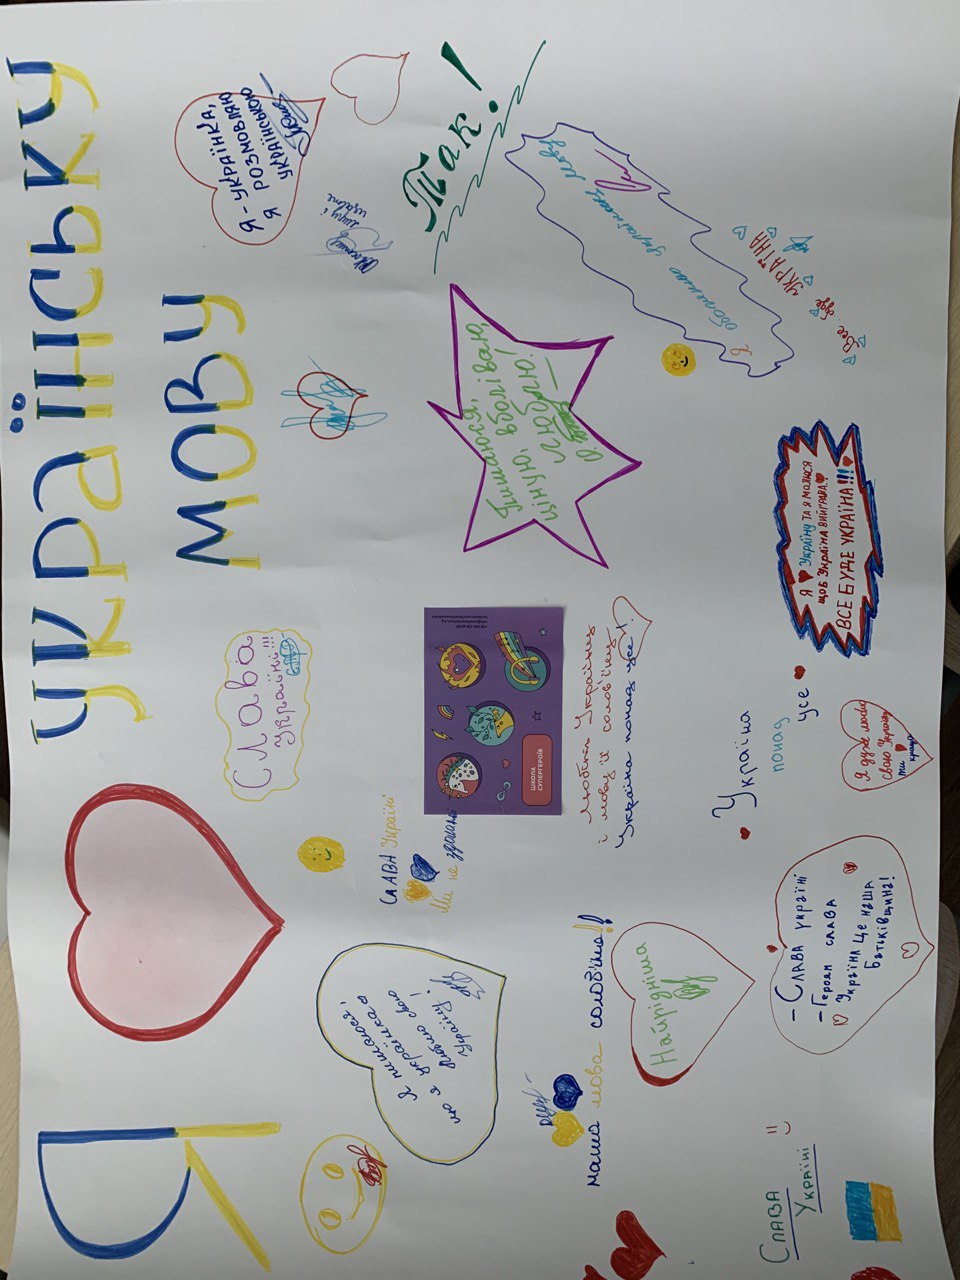 Я
УКРАЇНСЬКУ
МОВУ
Я - УКРАЇНКА,
Я РОЗМОВЛЯЮ
УКРАЇНСЬКОЮ
Так!
Слава
Україні!!!
Пишаюся,
ціную, вболіваю,
Люблю!
Я обожнюю українську мову
Все буде УКРАЇНА
САВА Україні
Ми не зрадили
Я пишаюся,
що я українка
Люблю свою
Україну!
ШКОЛА
СУПЕРГЕРОЇВ
Любіть Україну
і мову її солов'їну
Україна понад усе!
Я Україну та я молюся
щоб Україна виграла!
ВСЕ БУДЕ УКРАЇНА!!!
Україна
понад
усе
Я дуже люблю
свою Україну
Ми кращі
Наша мова солов'їна!!
Найрідніша
- Слава україні
- Героям слава
Україна це наша
Батьківщина!
Слава
Україні =)